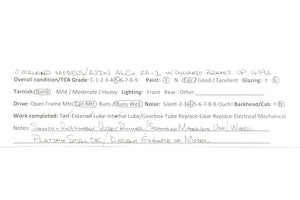 OVERLAND MODELS/AZIN ALCO FA-1 W/DYNAMIC BRAKES OP-1639A
Overall condition/TCA Grade: C-1-2-3-4-5-6-7-8-9 Paint: Y N Fair/Good / Excellent Glazing: Y N
Tarnish: None / Mild / Moderate / Heavy Lighting: Front Rear Other
Drive: Open Frame Mtr/Can Mtr Runs/Runs Well Noise: Silent-2-3-4-5-6-7-8-9-Ouch! Backhead/Cab: Y N
Work completed: Test-External Lube-Internal Lube/Gearbox-Tube Replace Gear Replace-Electrical-Mechanical
Notes: SMOOTH REASONABLY QUIET RUNNER/ MODERATE USE/ WHEEL
PLATING STILL OK/ DECENT EXAMPLE OF MODEL